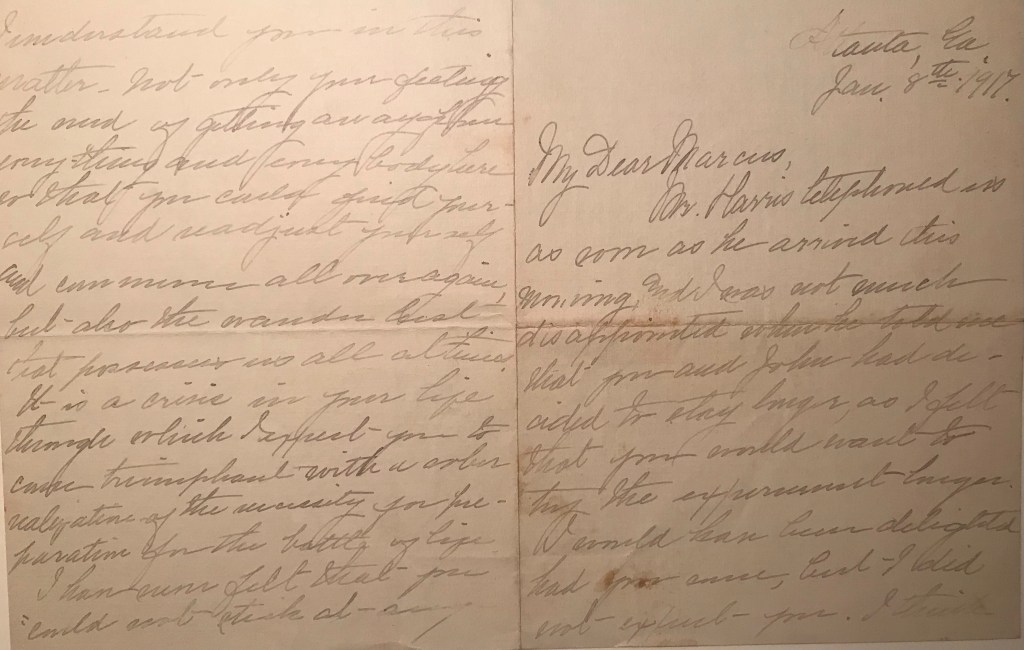 Atlanta, Ga.
Jan. 8th 1917.
My Dear Marcus,
Mr. Harris telephoned us
as soon as he arrived this
morning, and I was not much
disappointed when he told me
that you and John had de-
cided to stay longer, as I felt
that you would want to
try the experiment longer.
I would have been delighted
had you come, but I did
not expect you. I think
I understand you in this
matter - not only your feeling
the need of getting away from
everything and everybody here
so that you could find your-
self and readjust yourself
and commence all over again,
but also the wander lust
that possesses us all at times.
It is a crisis in your life
through which I expect you to
come triumphant with a sober
realization of the necessity for pre-
paration for the battle of life.
I have never felt that you
"could not stick at